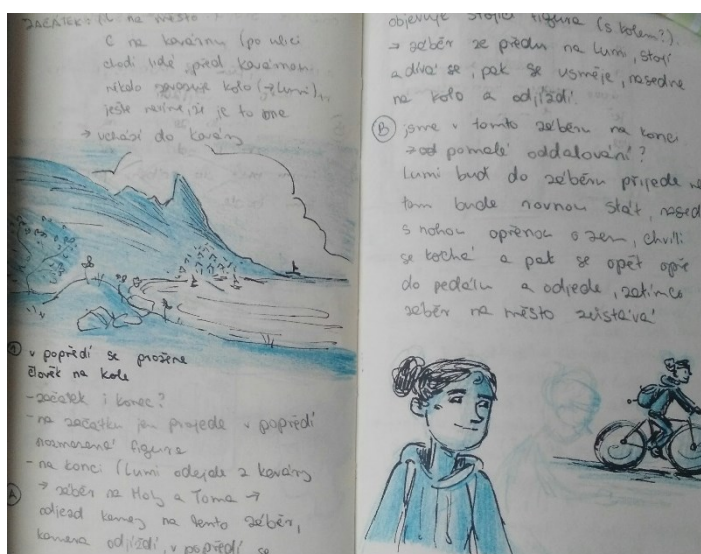 ZAČÁTEK: na město
C na kavárnu (po ulici
chodí lidé před kavárnou
někdo kolo (→Lumi),
ještě nevíme, že je to one
→ uchází do kavárny
v popředí se prožene
člověk na kole
- začátek i konec?
- na začátku jen projede v popředí
rozmazaná figura
- na konci (Lumi odejde z kavárny
→ záběr na Holy a Toma →
A
odjezd kamery na tento záběr,
kamera odjíždí, v popředí se
objevuje stojící figura (s kolem?).
→ záběr ze předu na Lumi, stojí
a dívá se, pak se usměje, nasedne
na kolo a odjíždí.
B jsme v tomto záběru na konci
→ pomalé oddalování?
Lumi buď do záběru přijede
tam bude rovnou stát,
s nohou opřenou o zem, chvíli
se kochá a pak se opět opře
do pedálu a odjede, zatímco
záběr na město zůstává